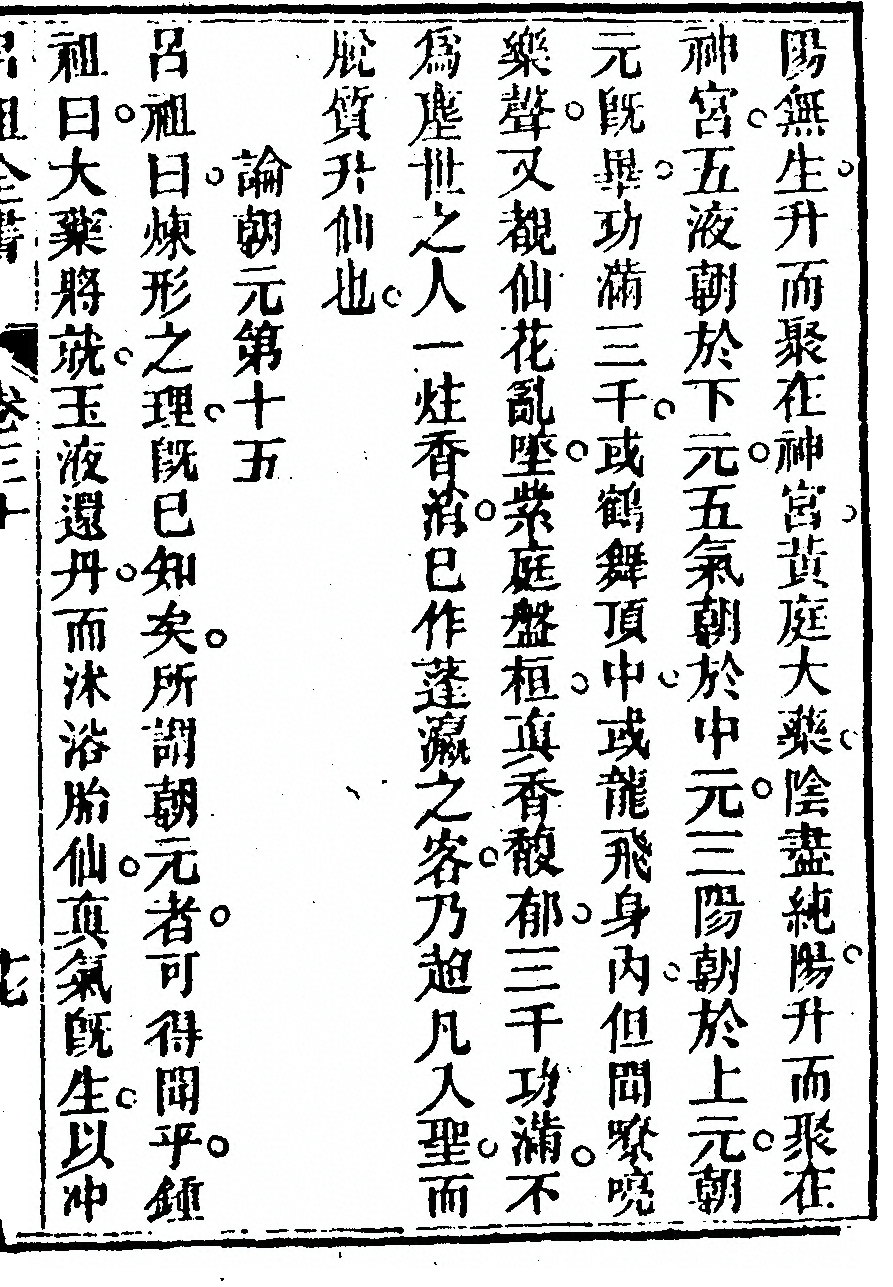 陽無生升而聚在神宮黃庭大藥陰盡純陽升而聚在
神宮五液朝於下元五氣朝於中元三陽朝於上元朝
元既畢功滿三千或鶴舞頂中或龍飛身內但聞嘹喨
樂聲又覩仙花亂墜紫庭盤桓真香馥郁三千功滿不
為塵世之人一炷香消已作蓬瀛之客乃超凡入聖而
脫質升仙也
論朝元第十五
呂祖曰煉形之理既已知矣所謂朝元者可得聞乎鍾
祖曰大藥將就玉液還丹而沐浴胎仙真氣既生以冲
呂祖全書 卷三十